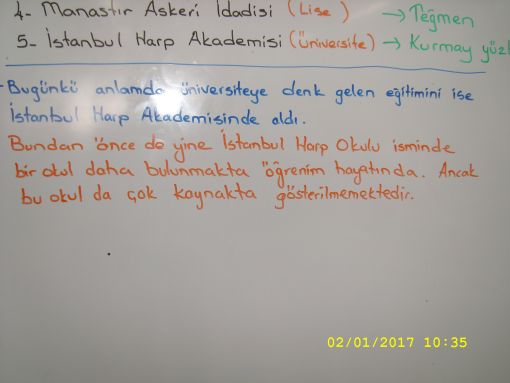 4- Manastır Askeri İdadisi (Lise) → Teğmen
5- İstanbul Harp Akademisi (Üniversite) → Kurmay yüz
- Bugünkü anlamda üniversiteye denk gelen eğitimini ise
İstanbul Harp Akademisinde aldı.
Bundan önce de yine İstanbul Harp Okulu isminde
bir okul daha bulunmakta öğrenim hayatında. Ancak
bu okul da çok kaynakta gösterilmemektedir.
02/01/2017 10:35